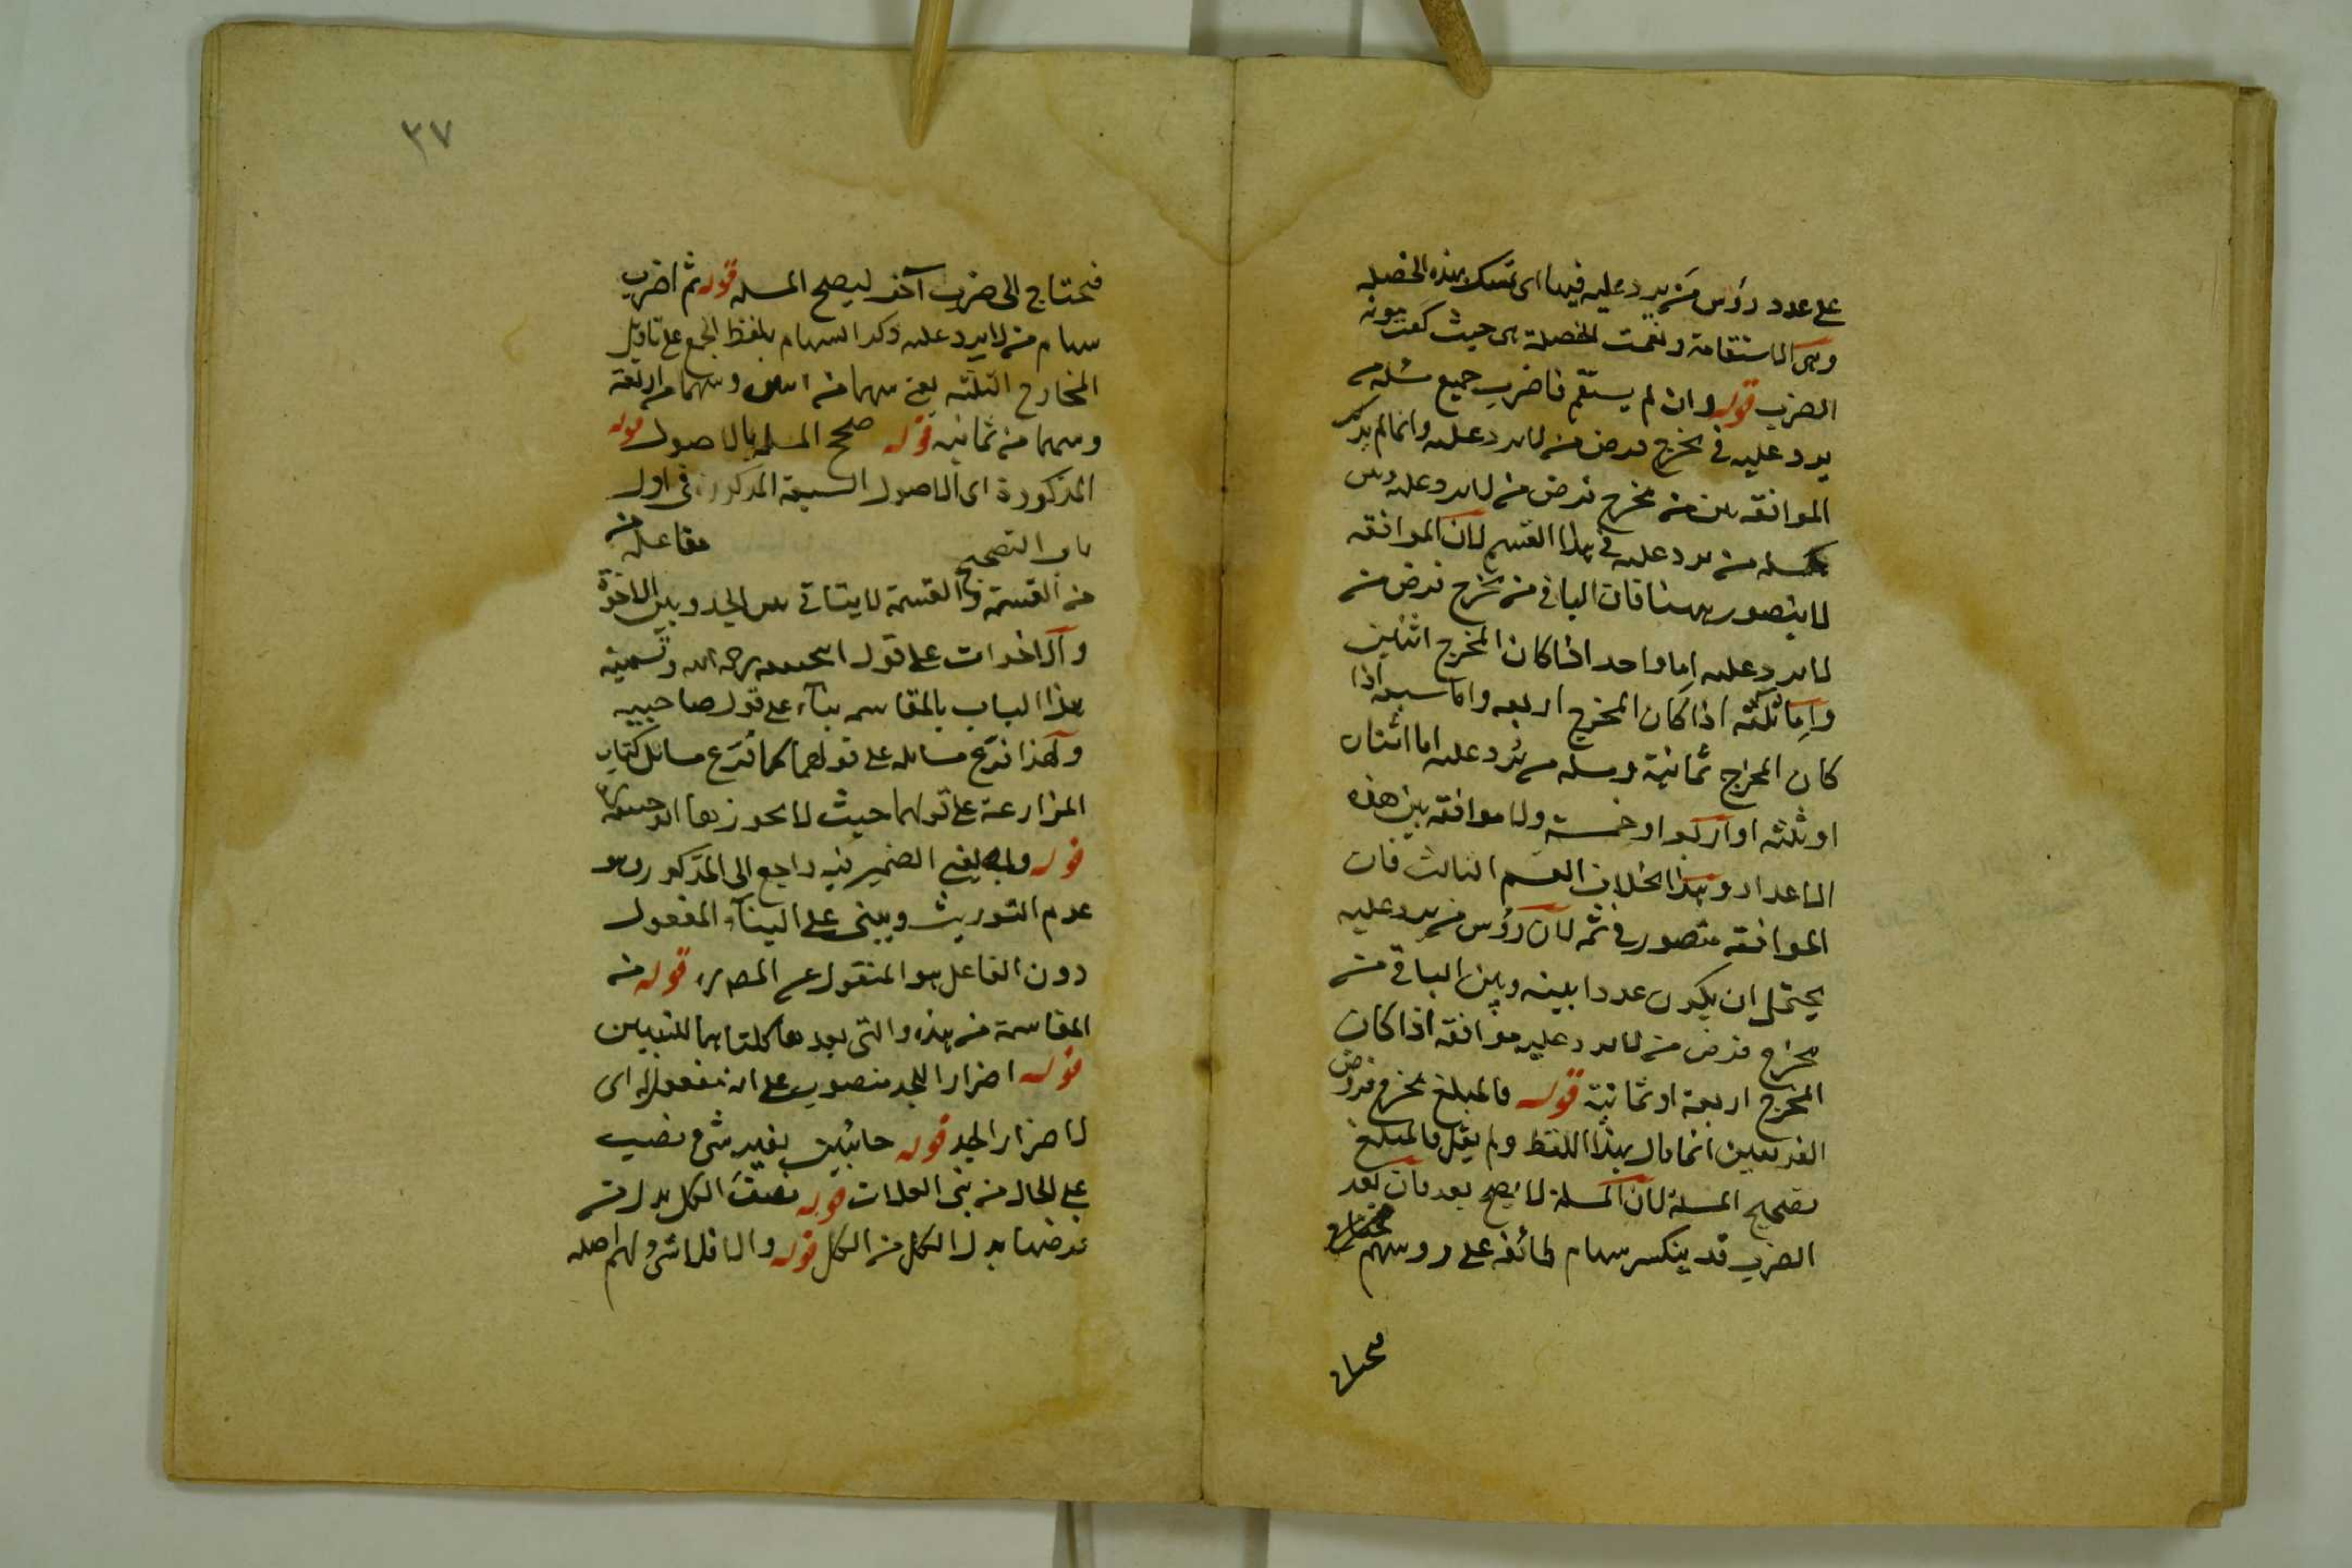 على عدد رؤس من يرد عليه فبها اى تمسك بهذه الخصلة
وهى الاستقامة ونعمت الخصلة هى حيث كفت مؤنة
الضرب قوله وان لم يستقم فاضرب جميع مسئلة من
يرد عليه فى مخرج فرض من لا يرد عليه وانما لم يذكر
الموافقة بين من مخرج فرض من لا يرد عليه وبين
مسئلة من يرد عليه فى هذا القسم لان الموافقة
لا يتصور ههنا فان الباقى من مخرج فرض من
لا يرد عليه اما واحد اذا كان المخرج اثنين
واما ثلثه اذا كان المخرج اربعه واما سبعه اذا
كان المخرج ثمانية ومسئله من يرد عليه اما اثنان
او ثلثه او اربعة او خمسة ولا موافقة بين هذه
الاعداد وهذا بخلاف القسم الثالث فان
الموافقة متصور فى ثمه لان رؤس من يرد عليه
يحتمل ان يكون عددا بينه وبين الباقى من
مخرج فرض من لا يرد عليه موافقة اذا كان
المخرج اربعة او ثمانية قوله فالمبلغ مخرج فروض
الفريقين انما قال بهذا اللفظ ولم يقل فالمبلغ
تصحيح المسئلة لان المسئلة لا يصح بعد فان بعد
الضرب قد ينكسر سهام طائفة على روسهم
فيحتاج
٣٧
فيحتاج الى ضرب آخر ليصح المسله قوله ثم اضرب
سهام من لا يرد عليه ذكر السهام بلفظ الجمع على تاويل
المخارج الثلثه يعنى سهما من اثنين وسهما من اربعة
وسهما من ثمانيه قوله صحح المسله بالاصول قوله
المذكورة اى الاصول السبعة المذكورة فى اول
باب التصحيح مفاعلة من
من القسمة والقسمة لا يتاتى بين الجد وبين الاخوة
والاخوات على قول ابى حنيفه رحمه الله وتسمية
هذا الباب بالمقاسمه بناء على قول صاحبيه
ولهذا فرع مسائله على قولهما كما فرع مسائل كتاب
المزارعة على قولهما حيث لا يجوزها ابو حنيفة
قوله وبه يفتى الضمير فيه راجع الى المذكور وهو
عدم التوريث ويبنى على البناء المفعول
دون الفاعل هو المنقول عن المص ره قوله من
المقاسمة من هذه والتى بعدها كلتاهما للتبيين
قوله اضرارا للجد منصوب على انه مفعول له اى
لاضرار الجد قوله خائبين بغير شئ نصب
على الحال من بنى العلات قوله نصف الكل بدل من
فرضها بدل الكل من الكل قوله والا فلا شئ لهم اصله